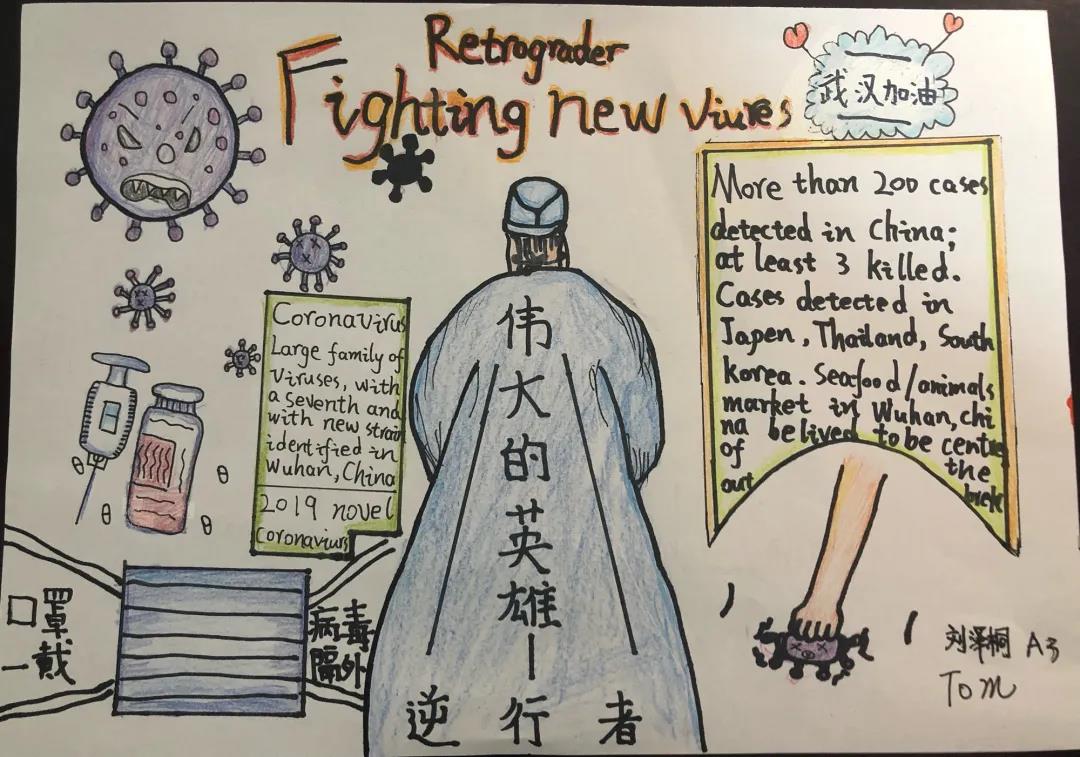 Retrograder
Fighting new Viures
武汉加油
More than 200 cases
detected in China;
at least 3 killed.
Cases detected in
Japen, Thailand, South
korea. Seafood/animals
market in Wuhan, chi
na belived to be centre
of the
out brek
Coronavirus
Large family of
Viruses, with
a seventh and
with new strain
identified in
Wuhan, China
2019 novel
Coronaviurs
伟
大
的
英
雄
—
逆行者
口罩
一戴
病毒
隔外
刘泽桐 A3
Tom